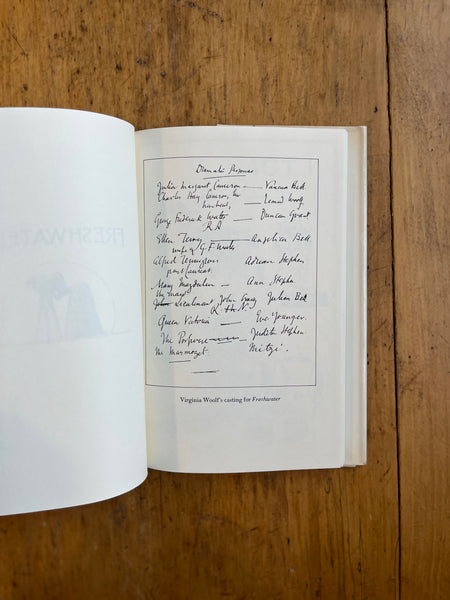 FRESHWATE
Dramatis Personae
Julia Margaret Cameron — Vanessa Bell
Charles Hay Cameron, her — Leonard Woolf
husband,
George Frederick Watts — Duncan Grant
R.A
Ellen Terry — Angelica Bell
wife of G.F. Watts
Alfred Tennyson Adrian Stephen
poet laureate
Mary Magdalen — Ann Stephen
the maid
John Lieutenant John Craig Julian Bell
R.N.
Queen Victoria — Eve Younger.
The Porpoise — Judith Stephen
The Marmoset Mitzi.
Virginia Woolf's casting for Freshwater